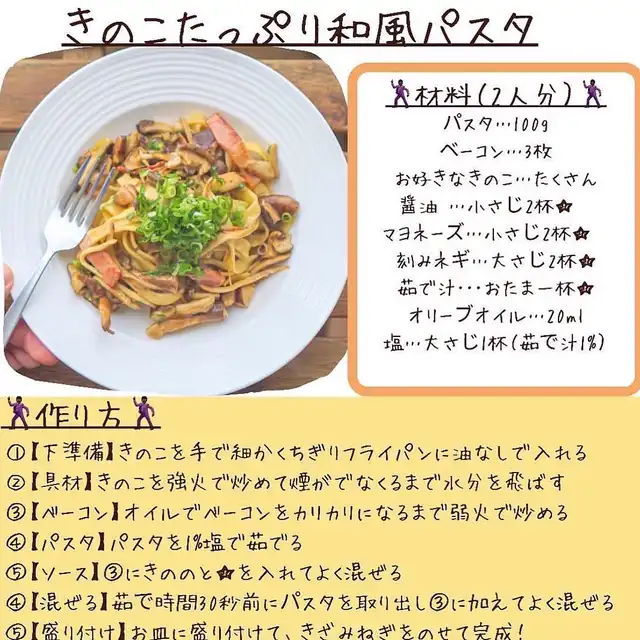 きのこたっぷり和風パスタ
材料(2人分)
パスタ…100g
ベーコン…3枚
お好きなきのこ…たくさん
醤油 …小さじ2杯★
マヨネーズ…小さじ2杯★
刻みネギ…大さじ2杯★
茹で汁…おたま一杯★
オリーブオイル…20ml
塩…大さじ1杯(茹で汁1%)
作り方
①【下準備】きのこを手で細かくちぎりフライパンに油なしで入れる
②【具材】きのこを強火で炒めて煙がでなくるまで水分を飛ばす
③【ベーコン】オイルでベーコンをカリカリになるまで弱火で炒める
④【パスタ】パスタを1%塩で茹でる
⑤【ソース】③にきののと★を入れてよく混ぜる
④【混ぜる】茹で時間30秒前にパスタを取り出し③に加えてよく混ぜる
⑤【盛り付け】お皿に盛り付けて、きざみねぎをのせて完成!